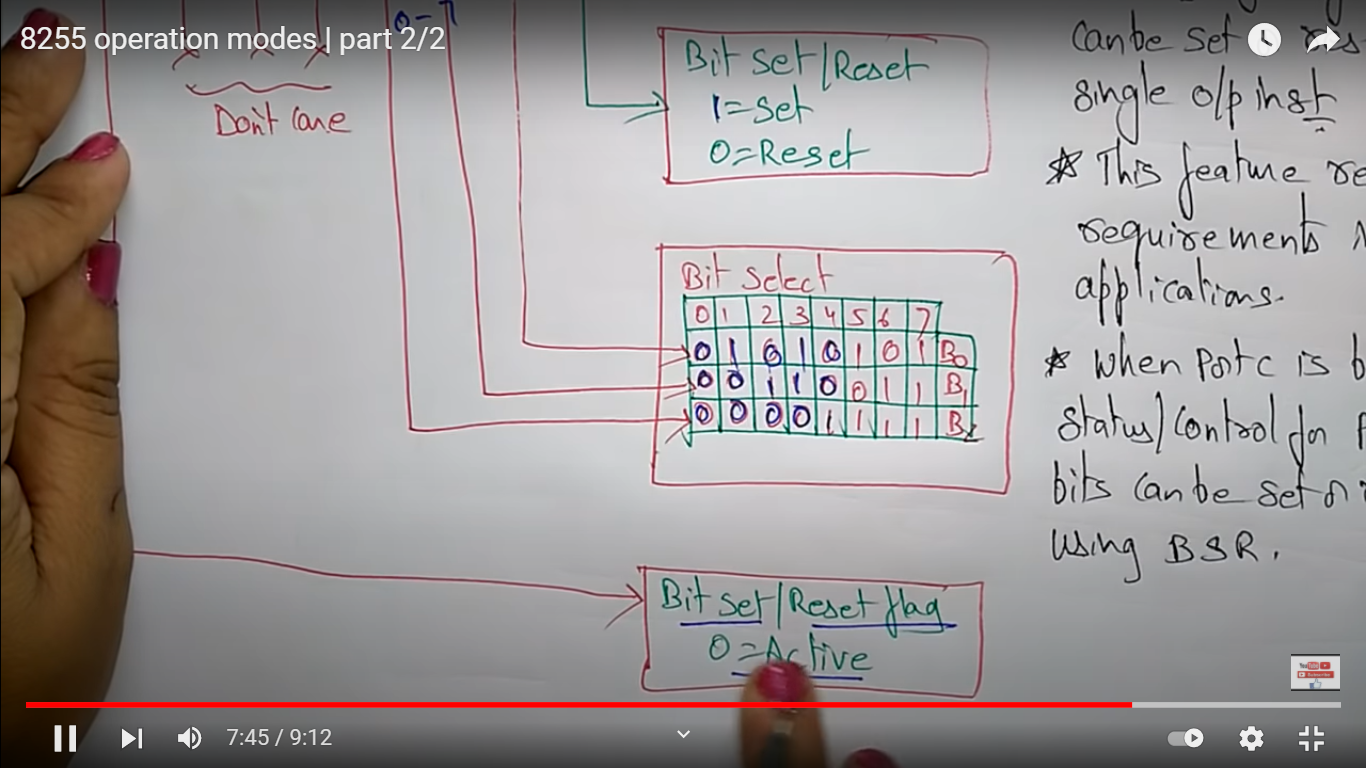 8255 operation modes | part 2/2
0-7
Don't Care
Bit Set/Reset
1=Set
0=Reset
Bit Select
0 1 2 3 4 5 6 7
0 1 0 1 0 1 0 1 B0
0 0 1 1 0 0 1 1 B1
0 0 0 0 1 1 1 1 B2
Bit set/Reset flag
0=Active
can be set
single o/p instr
* This feature
requirements
applications.
* When Port C is
status/control for
bits can be set or
using BSR.
YouTube
Subscribe
7:45 / 9:12